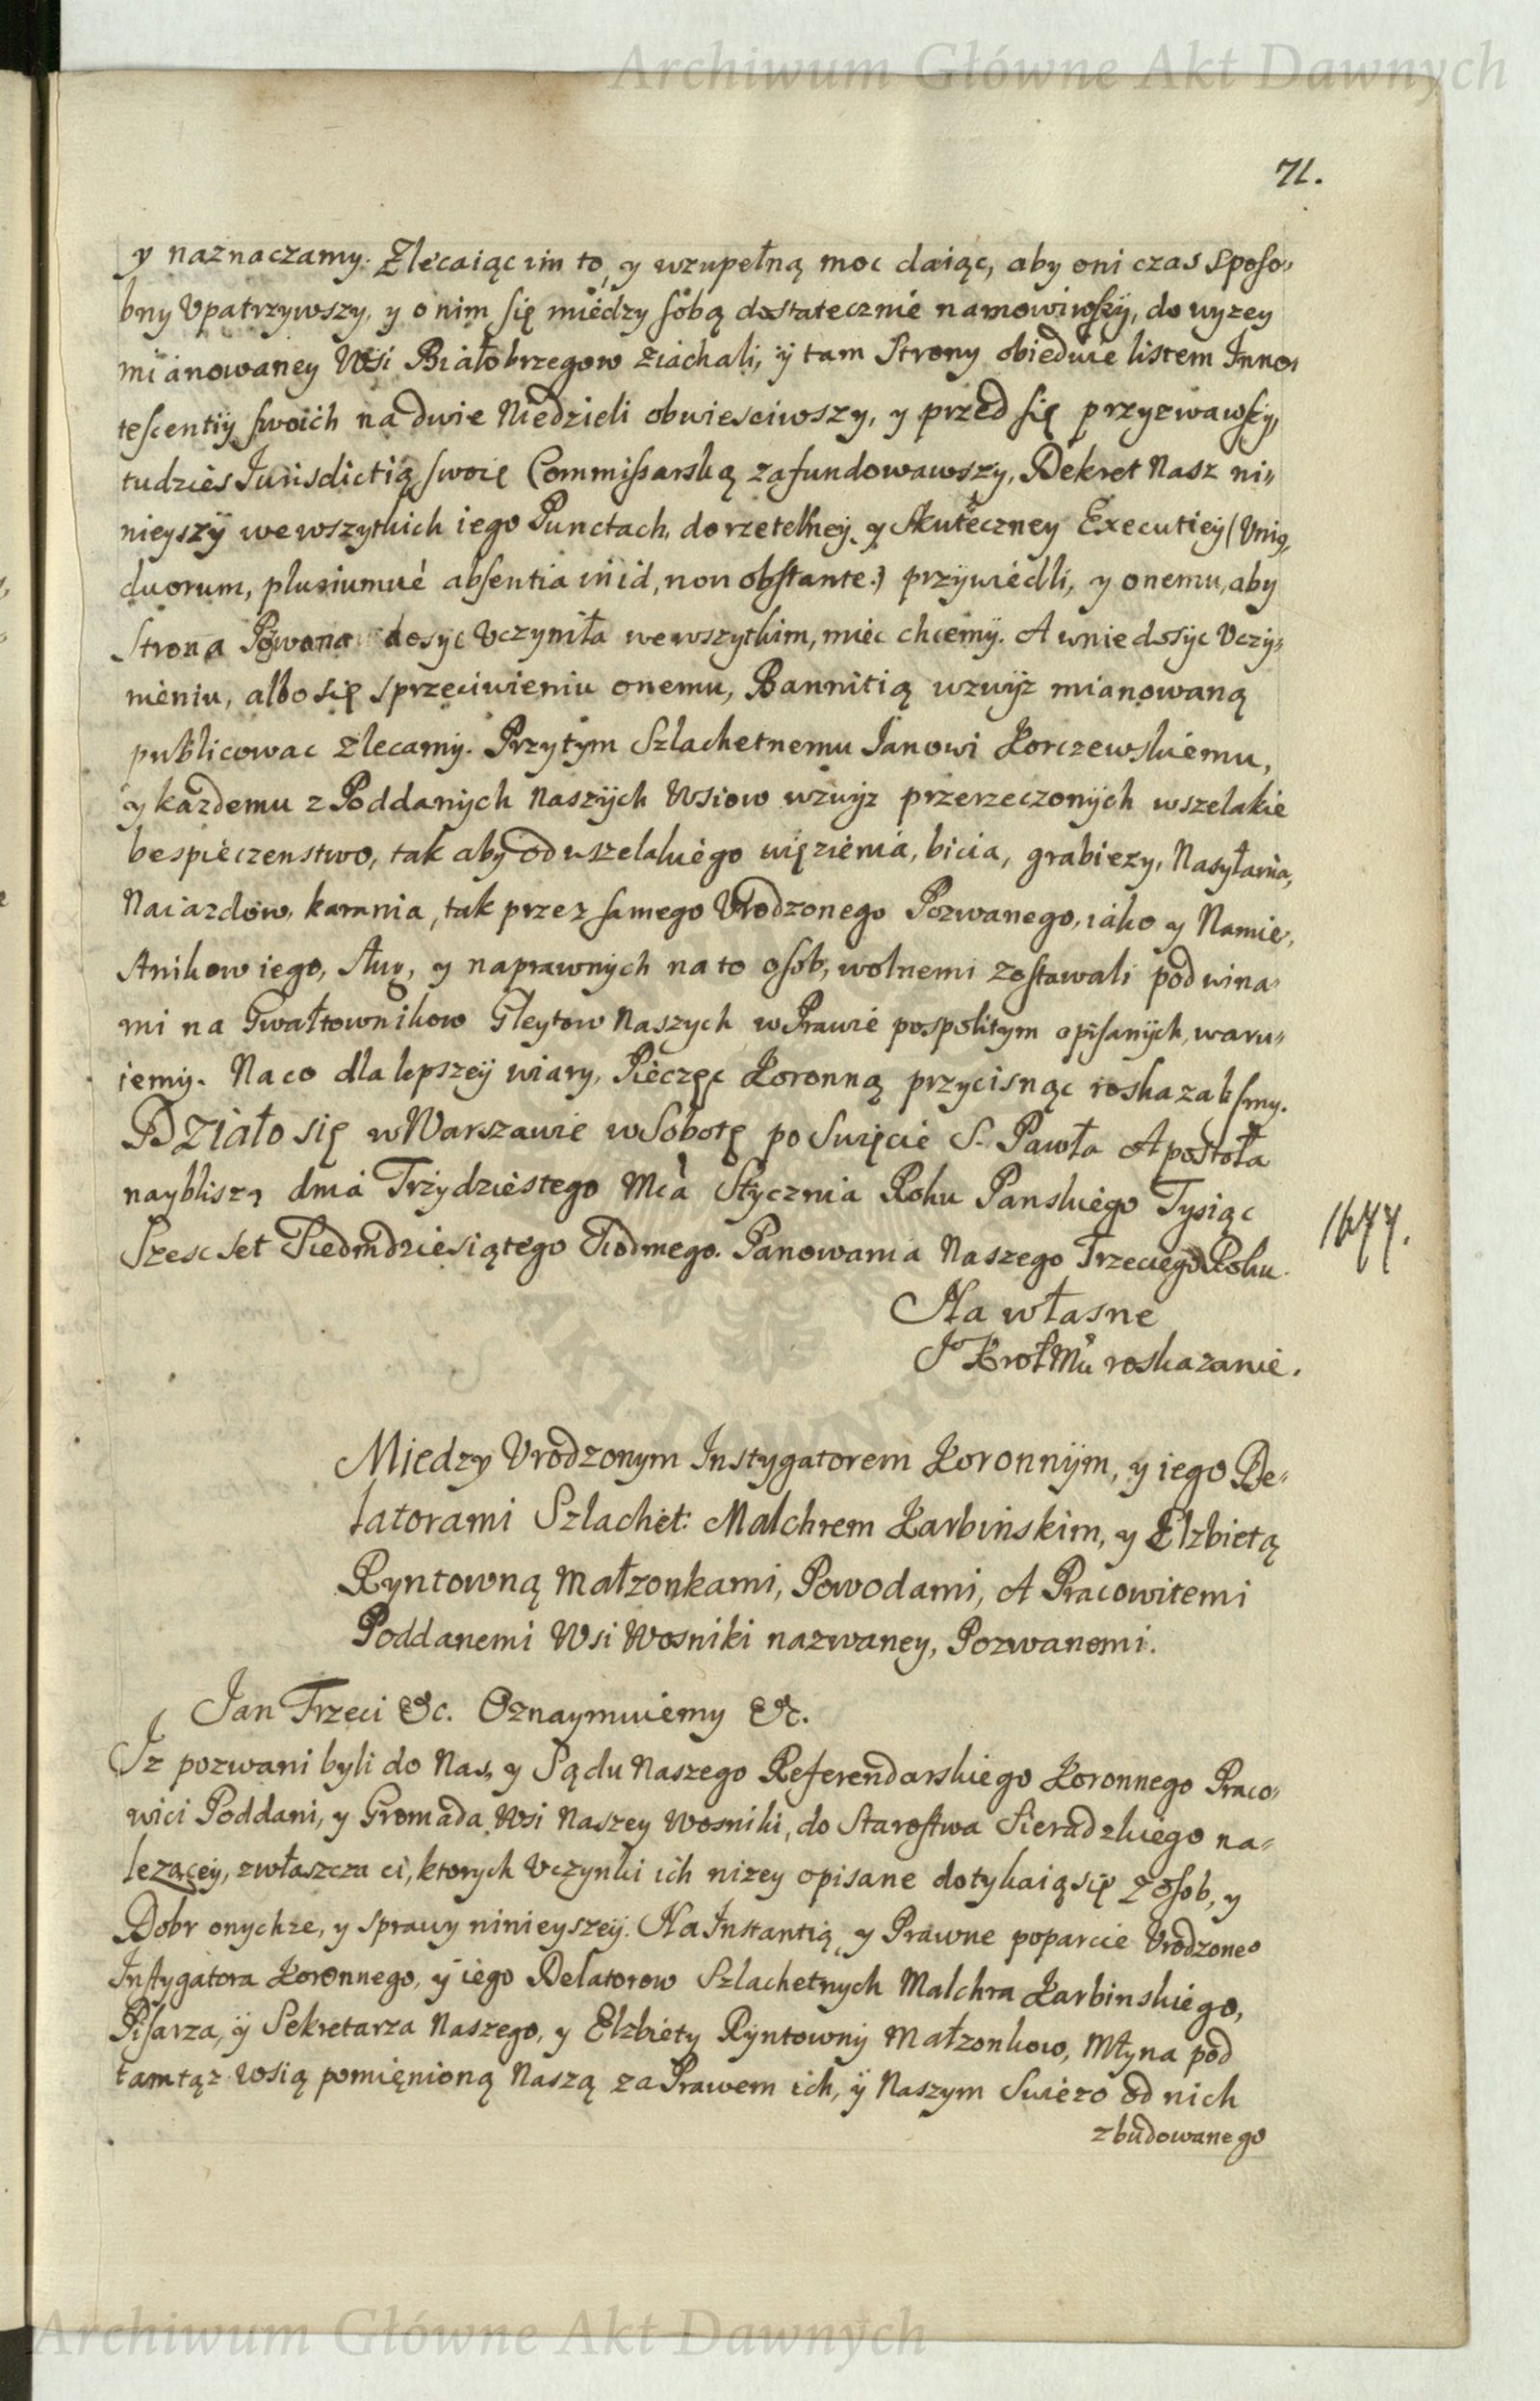 Archiwum Główne Akt Dawnych
71.
y naznaczamy. Zlecaiąc im to, y wzupełną moc daiąc, aby oni czas sposo-
bny Vpatrzywszy, y o nim się miedzy sobą dostatecznie namowiwszy, do wyzey
mianowaney Wsi Białobrzegow ziachali, y tam Strony obiedwie listem Inno-
tescentiy swoich na dwie Niedzieli obwiesciwszy, y przed się przyzwawszy,
tudzies Iurisdictią swoię Commissarską zafundowawszy, Dekret Nasz ni-
nieyszy we wszytkich iego Punctach, do rzetelney y Skuteczney Executiey (Vnig,
duorum, pluriumué absentia in id, non obstante.) przywiedli, y onemu, aby
Strona Pozwana dosyc Vczyniła we wszytkim, miec chcemy. A w niedosyc Vczy-
nieniu, albo się sprzeciwieniu onemu, Bannitią wzwyz mianowaną
publicowac zlecamy. Przytym Szlachetnemu Ianowi Korczewskiemu,
y kazdemu z Poddanych Naszych Wsiow wzwyz przerzeczonych wszelakie
bespieczenstwo, tak aby od wszelakiego więzienia, bicia, grabiezy, Nasyłania,
Naiazdow, karania, tak przez samego Vrodzonego Pozwanego, iako y Namie,
stnikow iego, sług, y naprawnych na to osob, wolnemi zostawali pod wina-
mi na Gwałtownikow Gleytow Naszych w Prawie pospolitym opisanych, waru-
iemy. Na co dla lepszey wiary, Pieczęc Koronną przycisnąc roskazalismy.
Działo się w Warszawie w Sobotę po Swięcie S. Pawła Apostoła
naybliszą dnia Trzydziestego Mca Stycznia Roku Panskiego Tysiąc
Szesc Set Siedmdziesiątego Siodmego. Panowania Naszego Trzeciego Roku.
1677.
Na własne
J Krol Mci roskazanie.
Miedzy Vrodzonym Instygatorem Koronnym, y iego De-
latorami Szlachet: Malchrem Karbinskim, y Elzbietą
Ryntowną Małzonkami, Powodami, A Pracowitemi
Poddanemi Wsi Wosniki nazwaney, Pozwanemi.
Jan Trzeci &c. Oznaymuiemy &c.
Iz pozwani byli do Nas, y Sądu Naszego Referendarskiego Koronnego Praco-
wici Poddani, y Gromada Wsi Naszey Wosniki, do Starostwa Sieradzkiego na-
lezącey, zwłaszcza ci, ktorych Vczynki ich nizey opisane dotykaią się z osob, y
Dobr onychze, y sprawy ninieyszey. Na Instantią, y Prawne poparcie Vrodzoneo
Instygatora Koronnego, y iego Delatorow Szlachetnych Malchra Karbinskiego,
Pisarza, y Sekretarza Naszego, y Elzbiety Ryntowny Małzonkow, Młyna pod
tamtąz wsią pomięnioną Naszą za Prawem ich, y Naszym Swiezo od nich
zbudowanego
Archiwum Główne Akt Dawnych